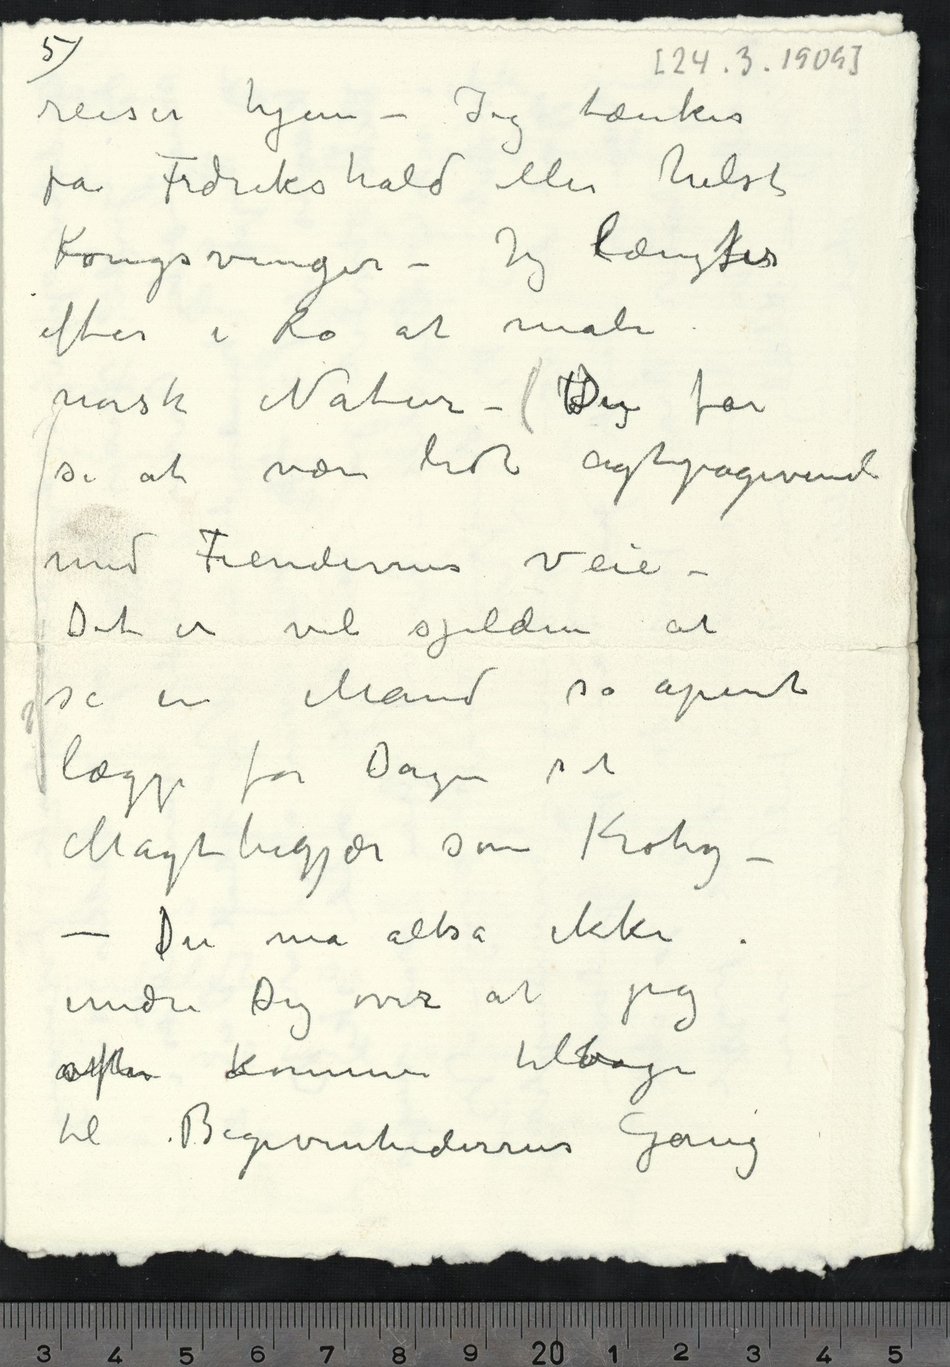 5)
[24.3.1909]
reiser hjem – Jeg tænkes
på Fredrikshald eller helst
Kongsvinger – Jeg længtes
efter i Ro at male
norsk Natur – ( Du får
se at være lidt agtpågivend
med Fiendernes Veie –
Det er vel sjelden at
se en Mand så åpent
lægge for Dagen sit
Magtbegjær som Krohg –
– Du må altså ikke
undre Dig over at jeg
kommer tilbage
til Begivenhedernes Gang
3 4 5 6 7 8 9 20 1 2 3 4 5